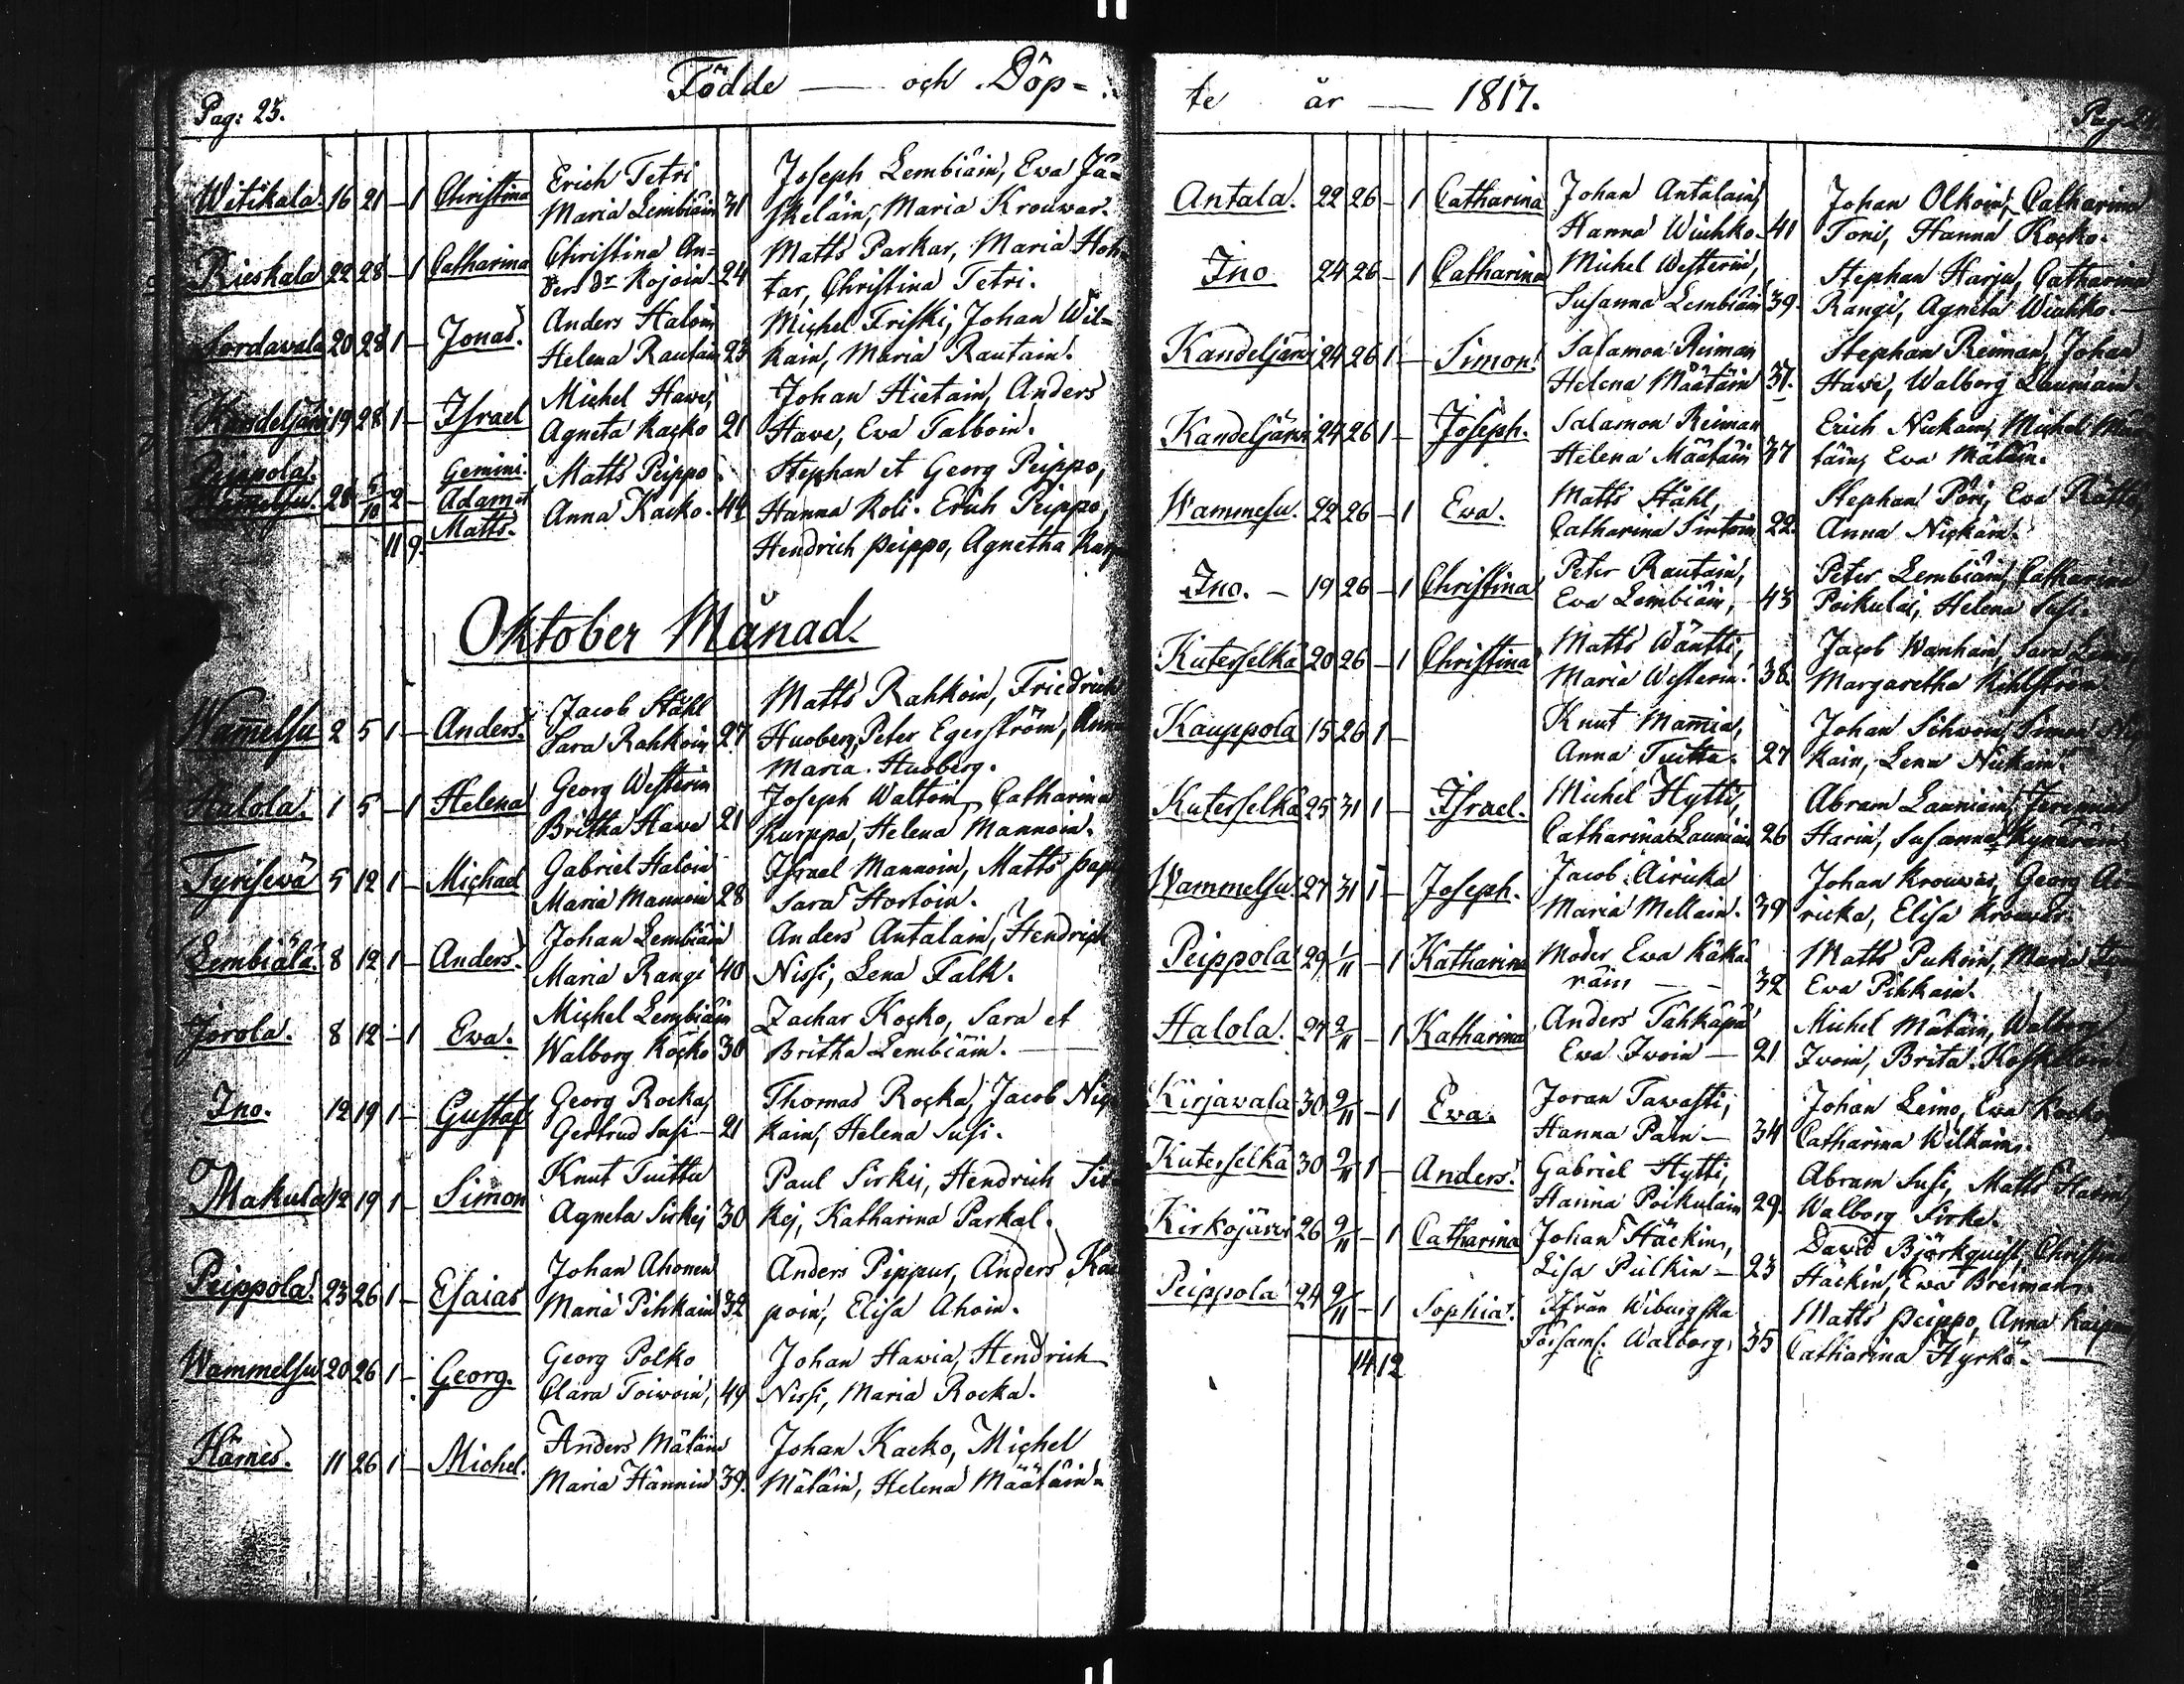 Pag: 23.
Födde — och Döp-
Witikala. 16 21 — 1 Christina Erich Tetri Joseph Lembiäin, Ewa Jä-
Maria Lembiäin 31 skeläin, Maria Krouwar.
Rieskala 22 28 — 1 Catharina Christina An- Matts Parkar, Maria Hoh-
ders dr Kojoin 24 tar, Christina Tetri.
Sordavala 20 28 1 — Jonas. Anders Haloin Michel Friski, Johan Wil-
Helena Rautain 23 kain, Maria Rautain.
Kandeljärvi 19 28 1 — Israel Michel Hawe, Johan Hietain, Anders
Agneta Kacko 21 Hawe, Ewa Talboin.
Peippola. Gemini. Matts Peippo Stephan et Georg Peippo,
28 5/10 2 — Adam et Anna Kacko. 44 Hanna Koli. Erich Peippo,
Matts. Hendrich Peippo, Agnetha
11 9
Oktober Månad.
Wammelsu 2 5 1 — Anders. Jacob Ståhl Matts Rahkoin, Friedrich
Sara Rahkoin 27 Huoberg, Peter Egerström, Anna
Maria Huoberg.
Halola. 1 5 — 1 Helena Georg Westerin Joseph Waltoin, Catharina
Britha Hawe 21 Kurppa, Helena Mannoin.
Tyrisewä 5 12 1 — Michael Gabriel Haloin Israel Mannoin, Matts
Maria Mannoin 28 Sara Hortoin.
Lembiälä. 8 12 1 — Anders. Johan Lembiäin Anders Antalain, Hendrich
Maria Rangi 40 Nissi, Lena Falk.
Jorola. 8 12 — 1 Ewa. Michel Lembiäin Zachar Kocko, Sara et
Walborg Kocko 30 Britha Lembiäin. —
Ino. 12 19 1 — Gustaf Georg Rocka, Thomas Rocka, Jacob
Gertrud Susi — 21 kain, Helena Susi.
Makula 12 19 1 — Simon Knut Tuitta Paul Sirkej, Hendrich Sir-
Agneta Sirkej 30 kej, Katharina Parkal.
Peippola. 23 26 1 — Esaias Johan Ahonen Anders Pippur, Anders
Maria Pihkain 32 poin, Elisa Ahoin.
Wammelsu 20 26 1 — Georg. Georg Polko Johan Hawia, Hendrich
Clara Toiwoin, 49 Nissi, Maria Rocka.
Härnes. 11 26 1 — Michel. Anders Mäläin Johan Kacko, Michel
Maria Hännin 39. Mäläin, Helena Määtäin.
te år — 1817.
Antala. 22 26 — 1 Catharina Johan Antalain, Johan Olkoin, Catharina
Hanna Wiuhko. 41 Toni, Hanna Kocko.
Ino 24 26 — 1 Catharina Michel Westerin, Stephan Harju, Catharina
Susanna Lembiäin 39. Rangi, Agneta Wiuhko.
Kandeljärvi 24 26 1 — Simon. Salamon Reiman Stephan Reiman, Johan
Helena Määtäin 37. Hawe, Walborg Launiain
Kandeljärvi 24 26 1 — Joseph. Salamon Reiman Erich Nickain, Michel
Helena Määtäin 37 täin, Ewa Mäläin.
Wammelsu. 22 26 — 1 Ewa. Matts Ståhl, Stephan Pöri, Ewa
Catharina Sintoin 22. Anna Nickäin.
Ino. — 19 26 — 1 Christina Peter Rautain, Peter Lembiäin, Catharina
Ewa Lembiäin, 43 Poikulai, Helena Susi.
Kuterselkä 20 26 — 1 Christina Matts Wäntti, Jacob Wanhain, Sara
Maria Westerin. 38. Margaretha Kihlström
Kauppola 15 26 1 — Knut Mamia, Johan Sihwoin, Simon
Anna Tuitta. 27 kain, Lena Nickain.
Kuterselkä 25 31 1 — Israel. Michel Hytti, Abram Launiain, Jeremias
Catharina Launiain 26 Harin, Susanna
Wammelsu 27 31 1 — Joseph. Jacob Airicka Johan Krouwar, Georg Ai-
Maria Mellain. 39 ricka, Elisa Krouwar.
Peippola 29 1/11 — 1 Katharina Moder Ewa Käkä- Matts Pukoin, Maria
räin — — 32 Ewa Pihkain.
Halola. 27 2/11 — 1 Katharina Anders Tähkäpä Michel Mäläin, Walborg
Ewa Iwoin — 21 Iwoin, Brita
Kirjavala 30 2/11 — 1 Ewa. Joran Tawasti, Johan Leino, Ewa Kocko,
Hanna Pain — 34 Catharina Wilkain.
Kuterselkä 30 2/11 1 — Anders. Gabriel Hytti, Abram Susi, Matts Harin,
Hanna Poikulain 29. Walborg Sirke.
Kirkojärvi 26 2/11 — 1 Catharina Johan Häckin, David Björkquist, Christina
Lisa Pulkin — 23 Häckin, Ewa Breiman.
Peippola 24 2/11 — 1 Sophia. Ifrån Wiburgska Matts Peippo, Anna
Förssaml. Walborg. 35 Catharina Hyrkö. —
14 12